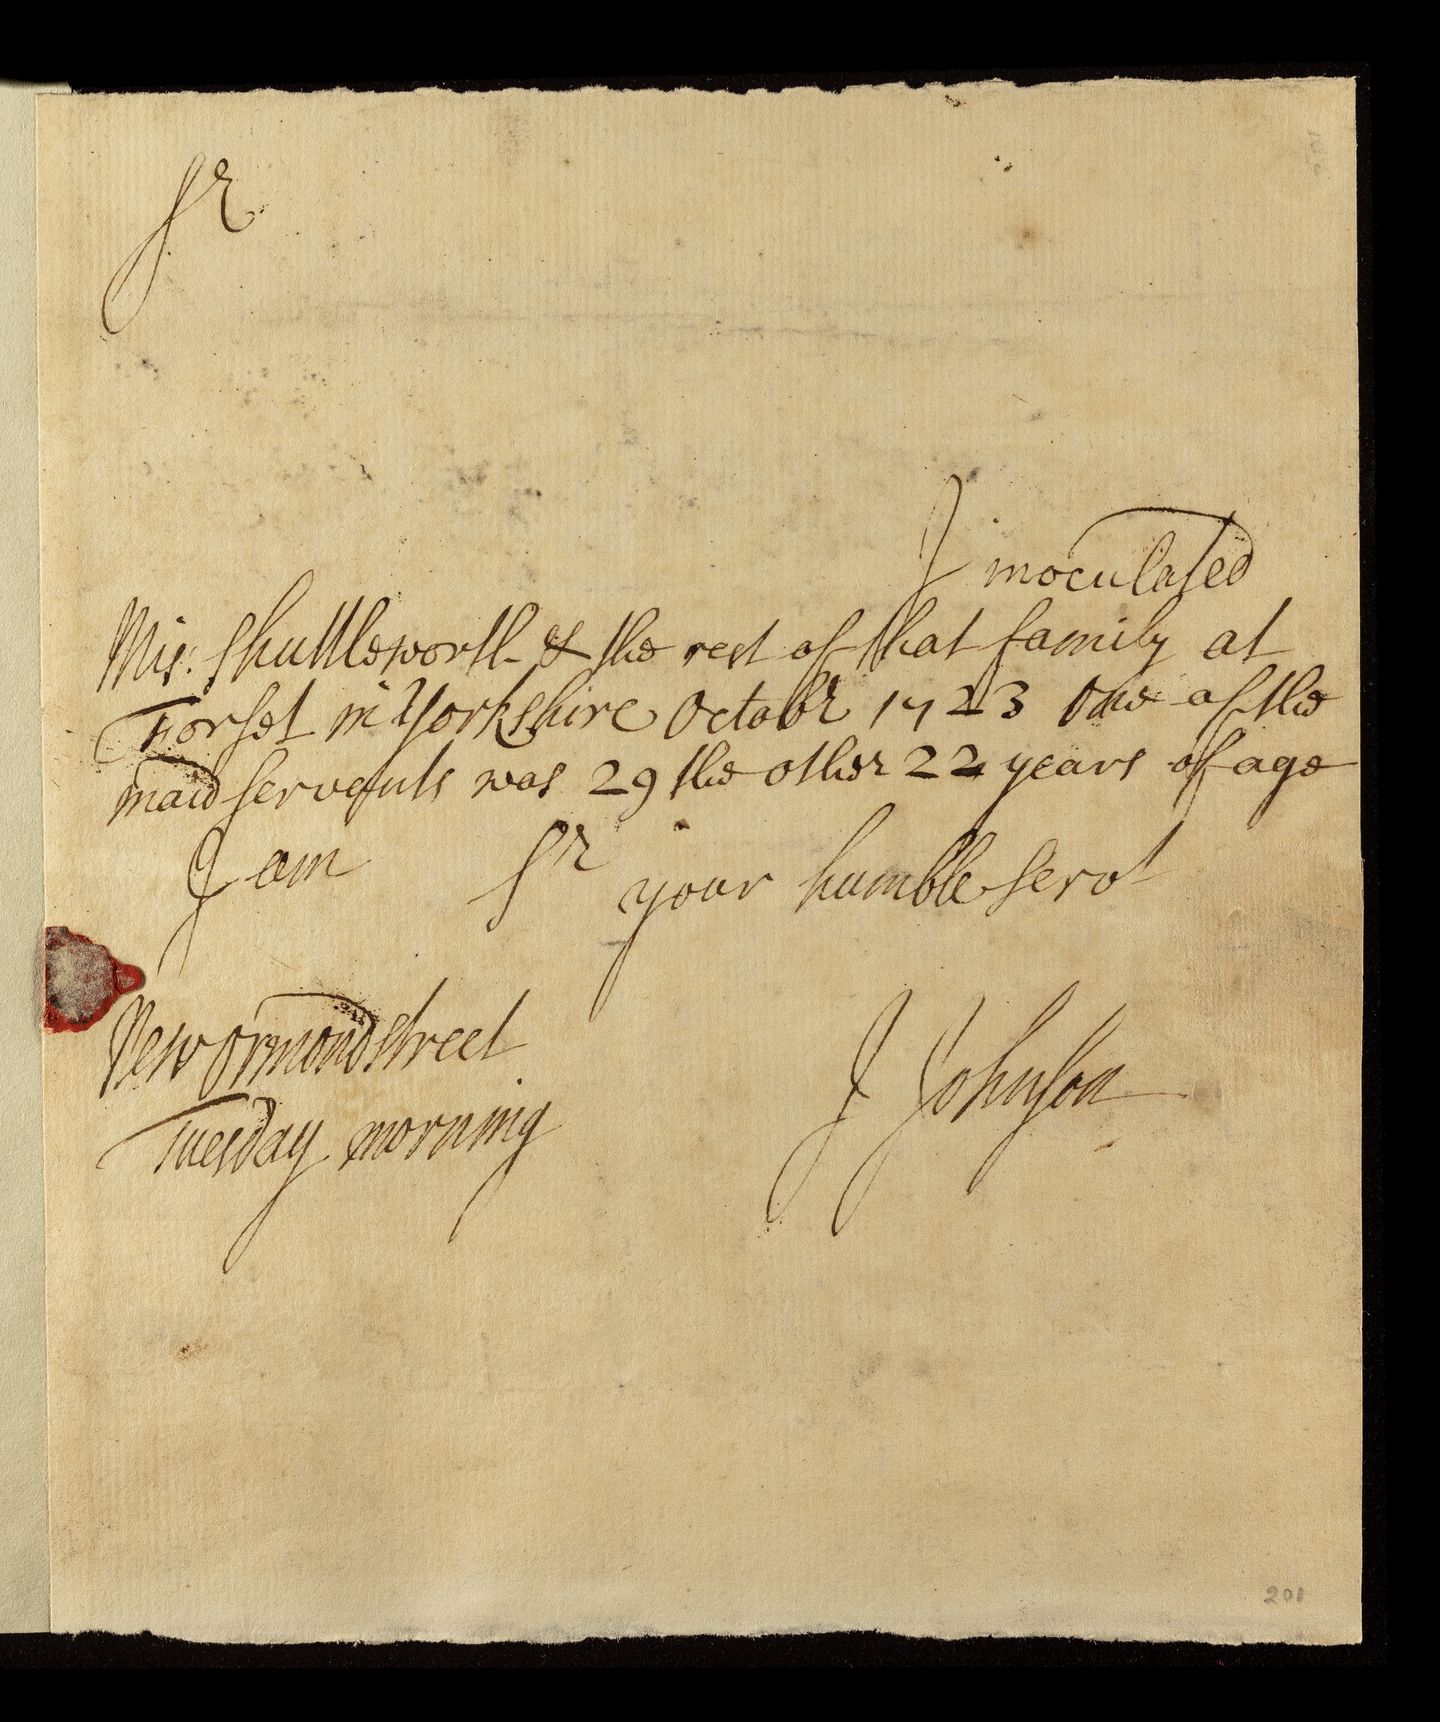 Sr
I inoculated
Mis: Shuttleworth & the rest of that family at
Forset in Yorkshire Octobr 1723 One of the
maid servants was 29 the other 22 years of age
I am Sr your humble servt
New ormond street
J Johnson
Tuesday morning
201